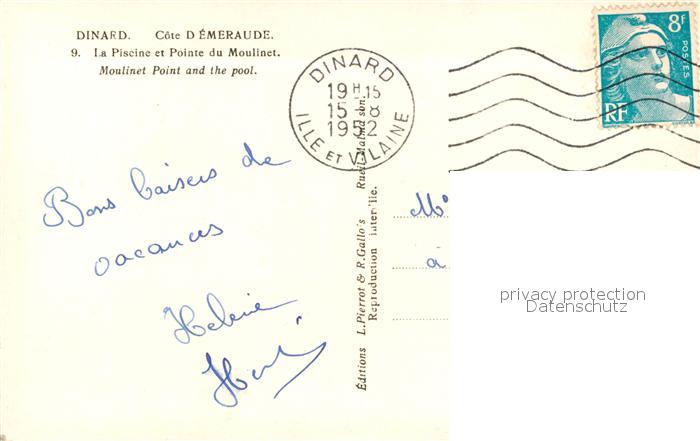 DINARD. Côte D'ÉMERAUDE.
9. La Piscine et Pointe du Moulinet.
Moulinet Point and the pool.
DINARD
19 H 15
15 - 8
1952
ILLE ET VILAINE
8F
POSTES
RF
Bons baisers de
vacances
Helene
Éditions L. Pierrot & R. Gallo's Rueil-Malmaison.
Reproduction interdite.
à
privacy protection
Datenschutz